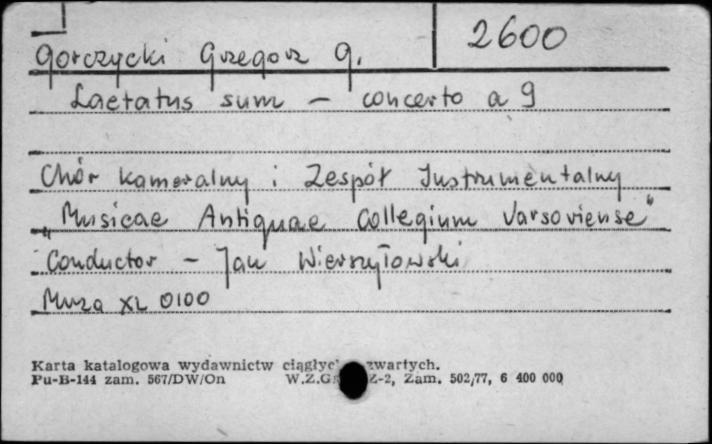 2600
Gorczycki Grzegorz G.
Laetatus sum – concerto a 9
Chór kameralny i Zespół Instrumentalny
„Musicae Antiquae Collegium Varsoviense"
Conductor – Jan Wierszyłowski
Muza XL 0100
Karta katalogowa wydawnictw zwartych.
Pu-B-144 zam. 567/DW/On Zam. 502/77, 6 400 000